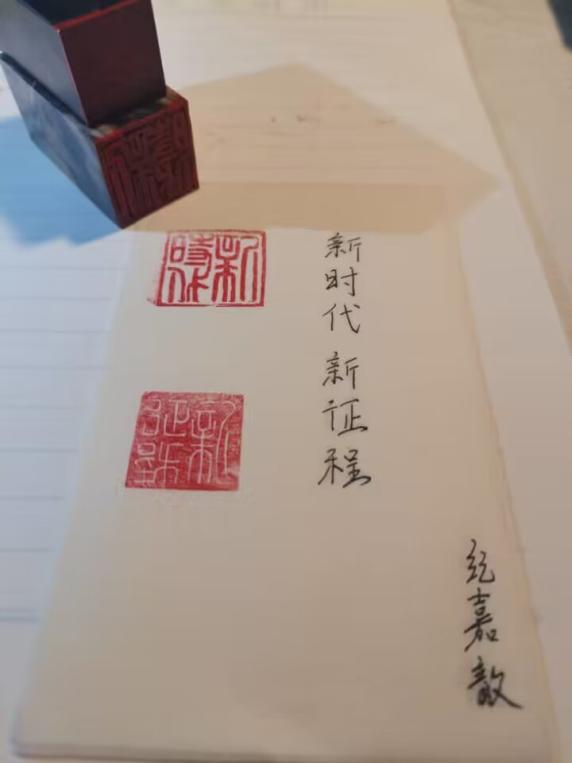 新时代 新征程
新時代
新征程
纪嘉歆